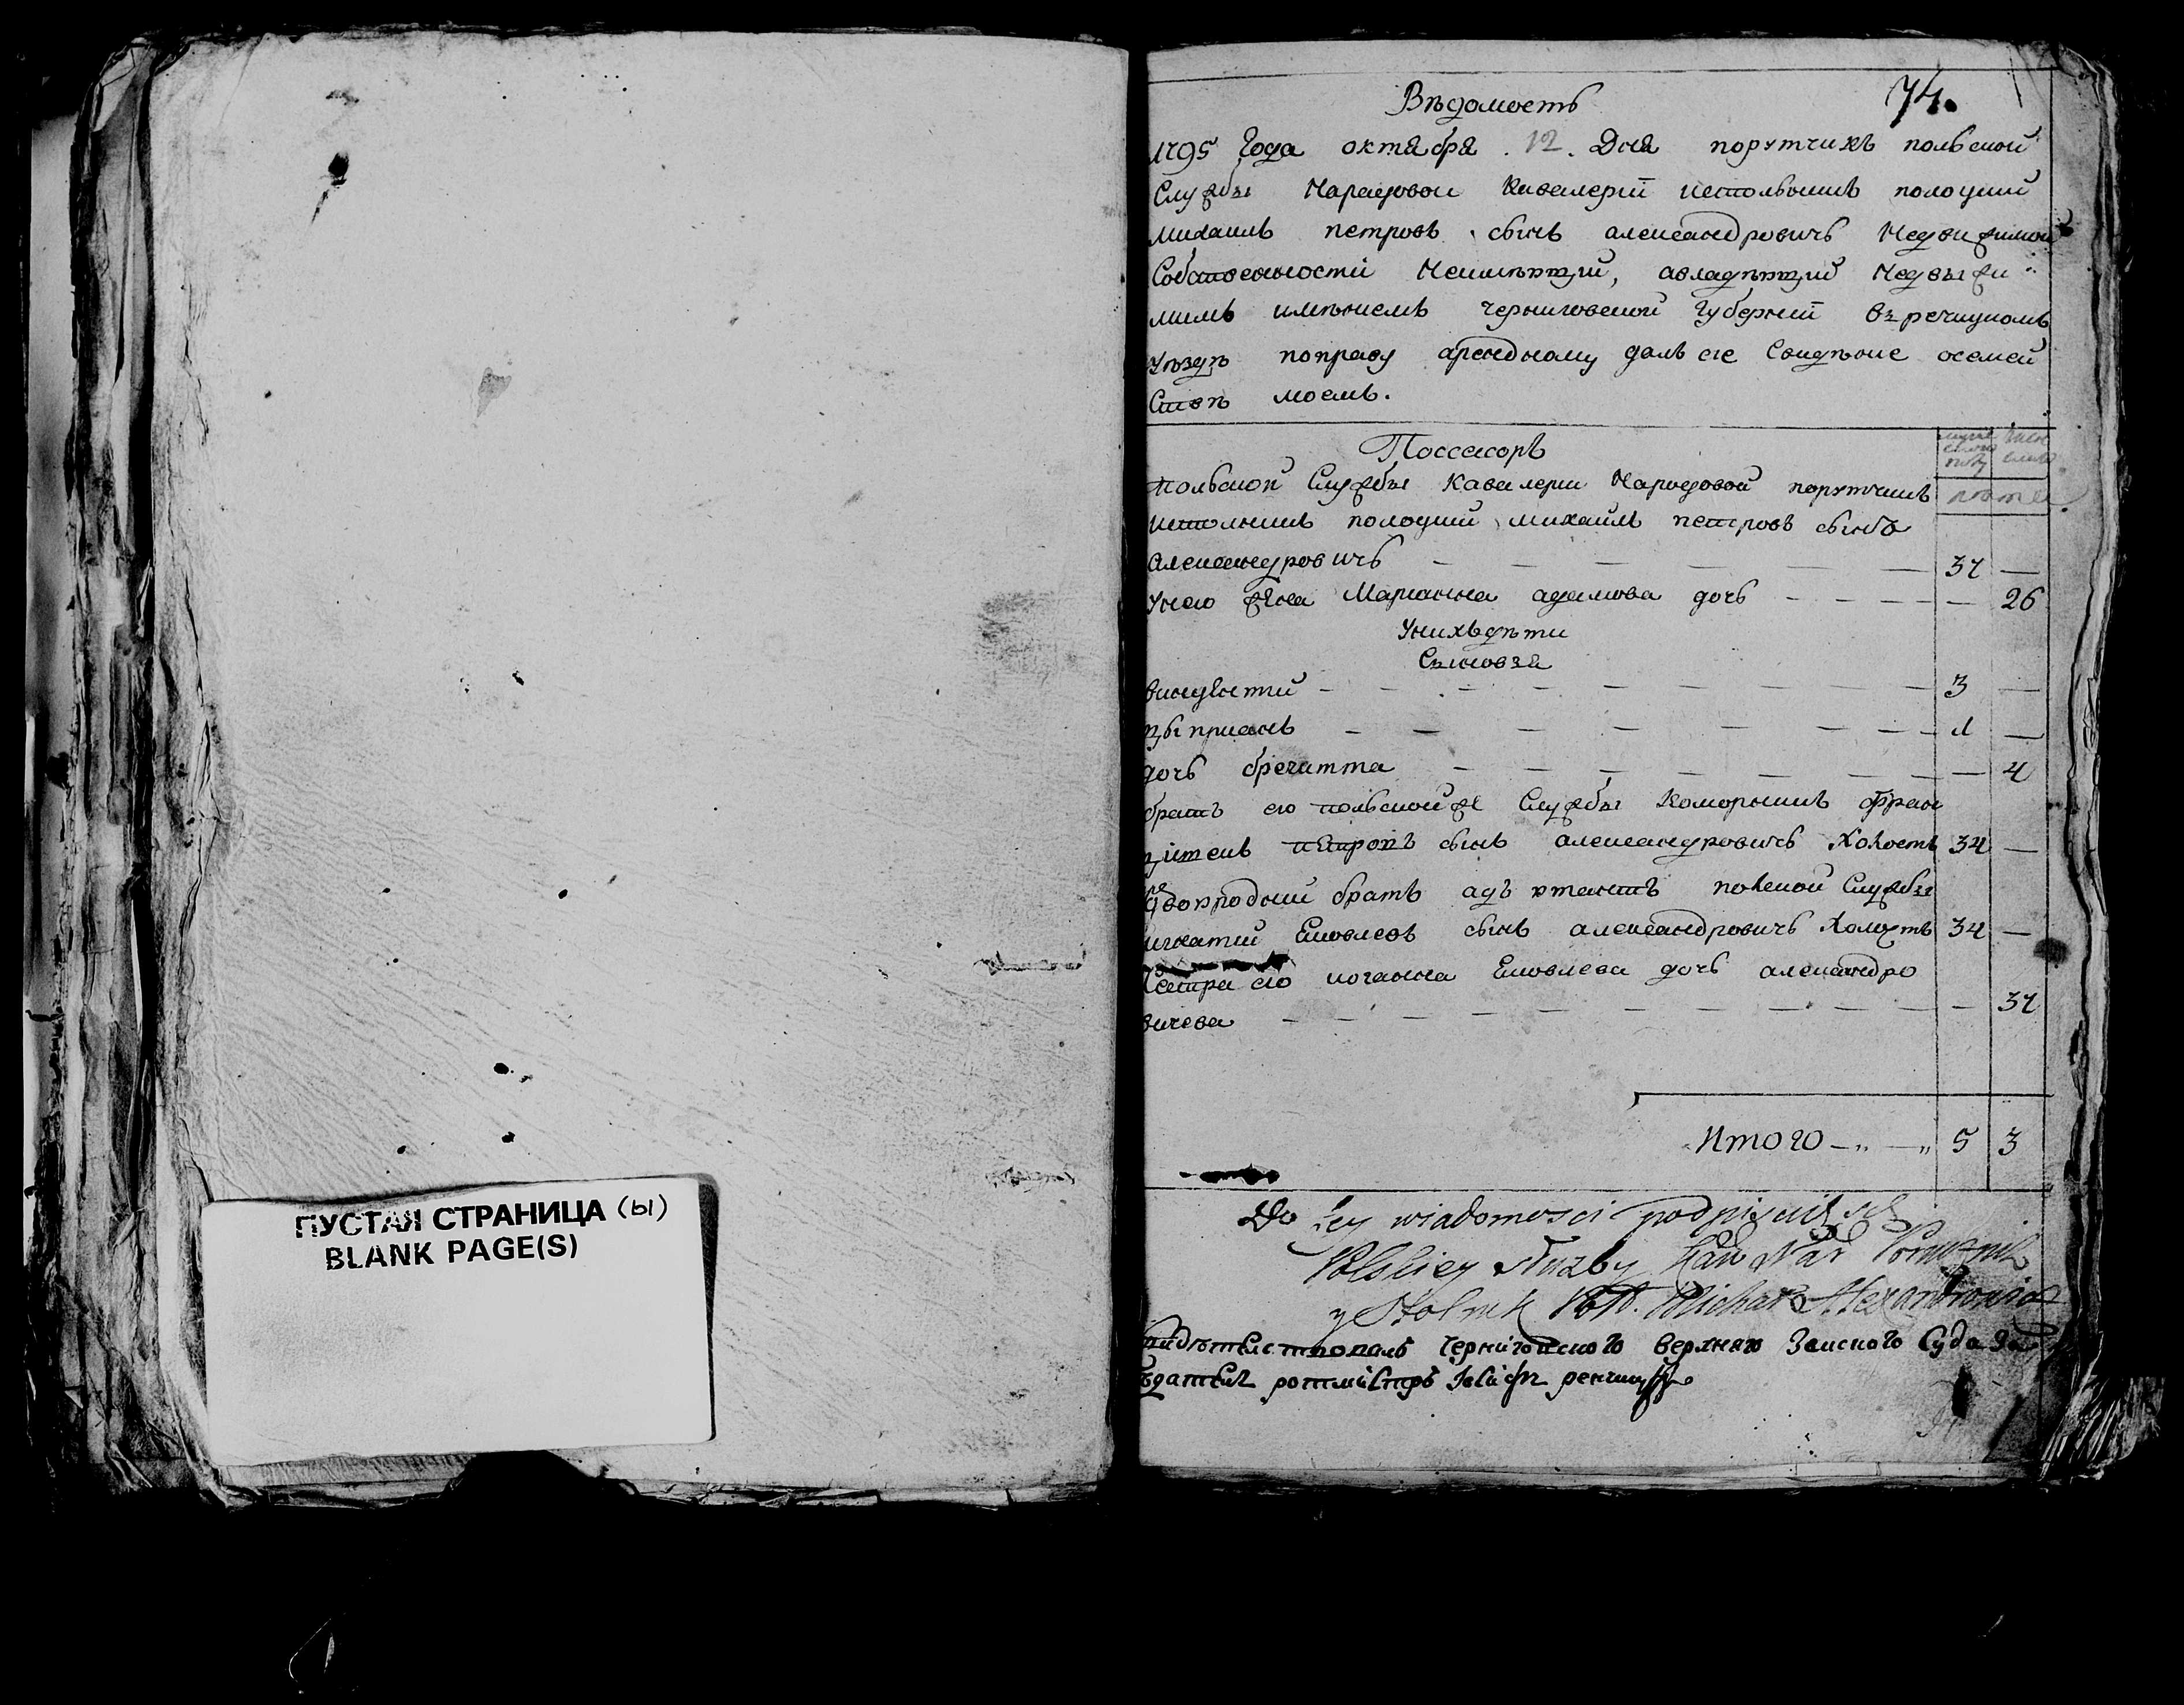 ПУСТАЯ СТРАНИЦА (ы)
BLANK PAGE(S)
74.
Вѣдомость
1795 Года октября 12. Дня порутчикъ полской
Службы Народовои Кавалерiи истольникъ полоцкий
михаилъ петровъ сынъ александровичъ Недвижимой
Собственности Неимѣющий, авладѣющий Недвыжи
мимъ имѣниемъ черниговской Губернiи взречицкомъ
уѣздѣ поправу арендному далъ сiе Свидѣние осемей
Ствѣ моемъ.
Поссесоръ
полской Службы Кавалерiи Народовой порутчикъ
истолникъ полоцкий михаилъ петровъ сынъ
Александровичъ — 37 —
Унего жена Марианна адамова дочъ — 26
Унихъ дѣти
Сыновья
винцентий — 3 —
цыприанъ — 1 —
дочъ бригитта — 4
братъ его полскойже Службы Коморникъ Фран
цишекъ петровъ сынъ александровичъ Холостъ 34 —
двоюродний братъ адъютантъ полской Службы
игнатий Яковлевъ сынъ александровичъ Холостъ 34 —
Сестра его иоганна Яковлева дочъ александро
вичева — 37
Итого — 5 3
Do tey wiadomosci podpisał się
Polskiey służby Kaw Nar Porucznik
y Stolnik Poł. Michał Alexandrowicz
Свидѣтелствовалъ Чернiговского верхняго Земского Суда За
сѣдатель ротмистръ